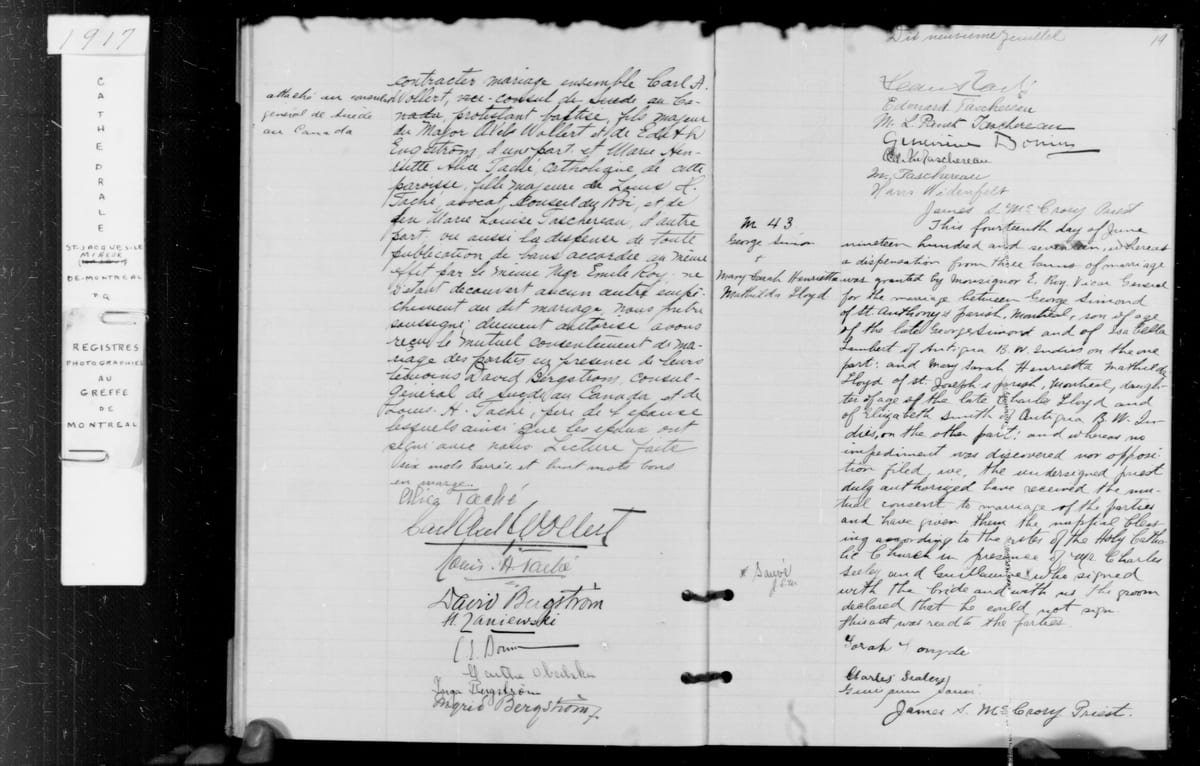 1917
CATHEDRALE
ST-JACQUES-LE
MINEUR
DE-MONTREAL
P.Q
REGISTRES
PHOTOGRAPHIES
AU
GREFFE
DE
MONTREAL
attaché au consulat
général de Suède
au Canada
contracter mariage ensemble Carl A.
Wollert, vice-consul de Suède au Ca-
nada, protestant baptisé, fils majeur
du Major Wollert et de Edith
Engström, d'une part, et Marie Hen-
riette Alice Taché, catholique de cette
paroisse, fille majeure de Louis H.
Taché, avocat, Conseil du Roi, et de
feu Marie Louise Taschereau, d'autre
part, vu aussi la dispense de toute
publication de bans accordée au même
effet par le même Mgr Emile Roy, ne
s'étant découvert aucun autre empê-
chement au dit mariage, nous prêtre
soussigné, dument autorisé avons
reçu le mutuel consentement de ma-
riage des parties en présence de leurs
témoins David Bergström, Consul-
Général de Suède au Canada, et de
Louis. H. Taché, père de l'épouse
lesquels ainsi que les époux ont
signé avec nous. Lecture faite
six mots barrés et huit mots bons
en marge.
Alice Taché
Carl Axel Wollert
Louis. H Taché
David Bergström
H Zaniewski
Inga Bergström
Ingrid Bergström
Dix neuvième feuillet
19
Edouard Taschereau
Taschereau
Geneviève
Taschereau
Taschereau
Hans Widenfelt
James S. McCrory Priest
M 43
George Simon
&
Mary Sarah Henrietta
Mathilda Lloyd
This fourteenth day of June
nineteen hundred and seventeen, whereas
a dispensation from three banns of marriage
was granted by Monsignor E. Roy Vicar General
for the marriage between George Simond
of St. Anthony's parish, Montreal, son of age
of the late George Simond and of Isabella
Lambert of Antigua B. W. Indies on the one
part: and Mary Sarah Henrietta Mathilda
Lloyd of St. Joseph's parish, Montreal, daugh-
ter of age of the late Charles Lloyd and
of Elizabeth Smith of Antigua B. W. In-
dies, on the other part: and whereas no
impediment was discovered nor opposi-
tion filed, we, the undersigned priest
duly authorized have received the mu-
tual consent to marriage of the parties
and have given them the nuptial bless-
ing according to the rites of the Holy Catho-
lic Church in presence of Mr. Charles
Seeley and x who signed
with the bride and with us. The groom
declared that he could not sign.
This act was read to the parties.
x Sauvé
Sarah
Charles Sealey
James S. McCrory Priest.